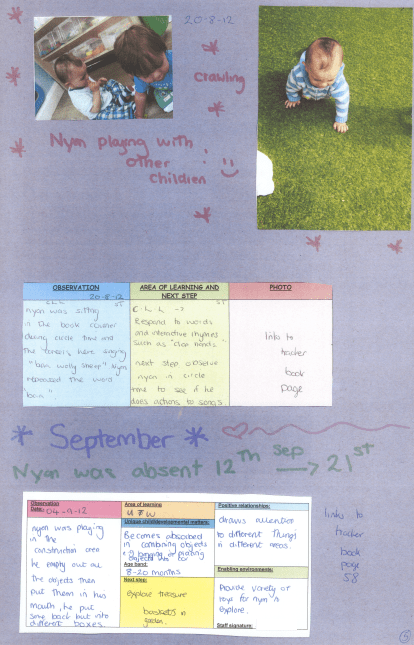 20-8-12
Crawling
Nyan playing with
other
children
OBSERVATION
20-8-12
ST
nyan was sitting
in the book corner
during circle time and
the careers were singing
"baa wolly sheep" Nyan
repeated the word
"baa"
AREA OF LEARNING AND
NEXT STEP
ST
C-L-L ->
Respond to words
and interactive rhymes
such as "clap hands"
next step observe
nyan in circle
time to see if he
does actions to songs.
PHOTO
links to
tracker
book
page
* September *
Nyan was absent 12th Sep -> 21st
Observation
Date: 04-9-12
nyan was playing
in the
construction area
he empty out all
the objects then
put them in his
mouth, he put
some back but into
different boxes.
Area of learning
U+W
Unique child/developmental matters:
Becomes absorbed
in combining objects
Age band:
8-20 months
Next step:
explore treasure
baskets in
garden.
Positive relationships:
draws attention
to different things
in different areas.
Enabling environments:
Provide variety of
toys for nyan to
explore.
Staff signature:
links to
tracker
book
page
58